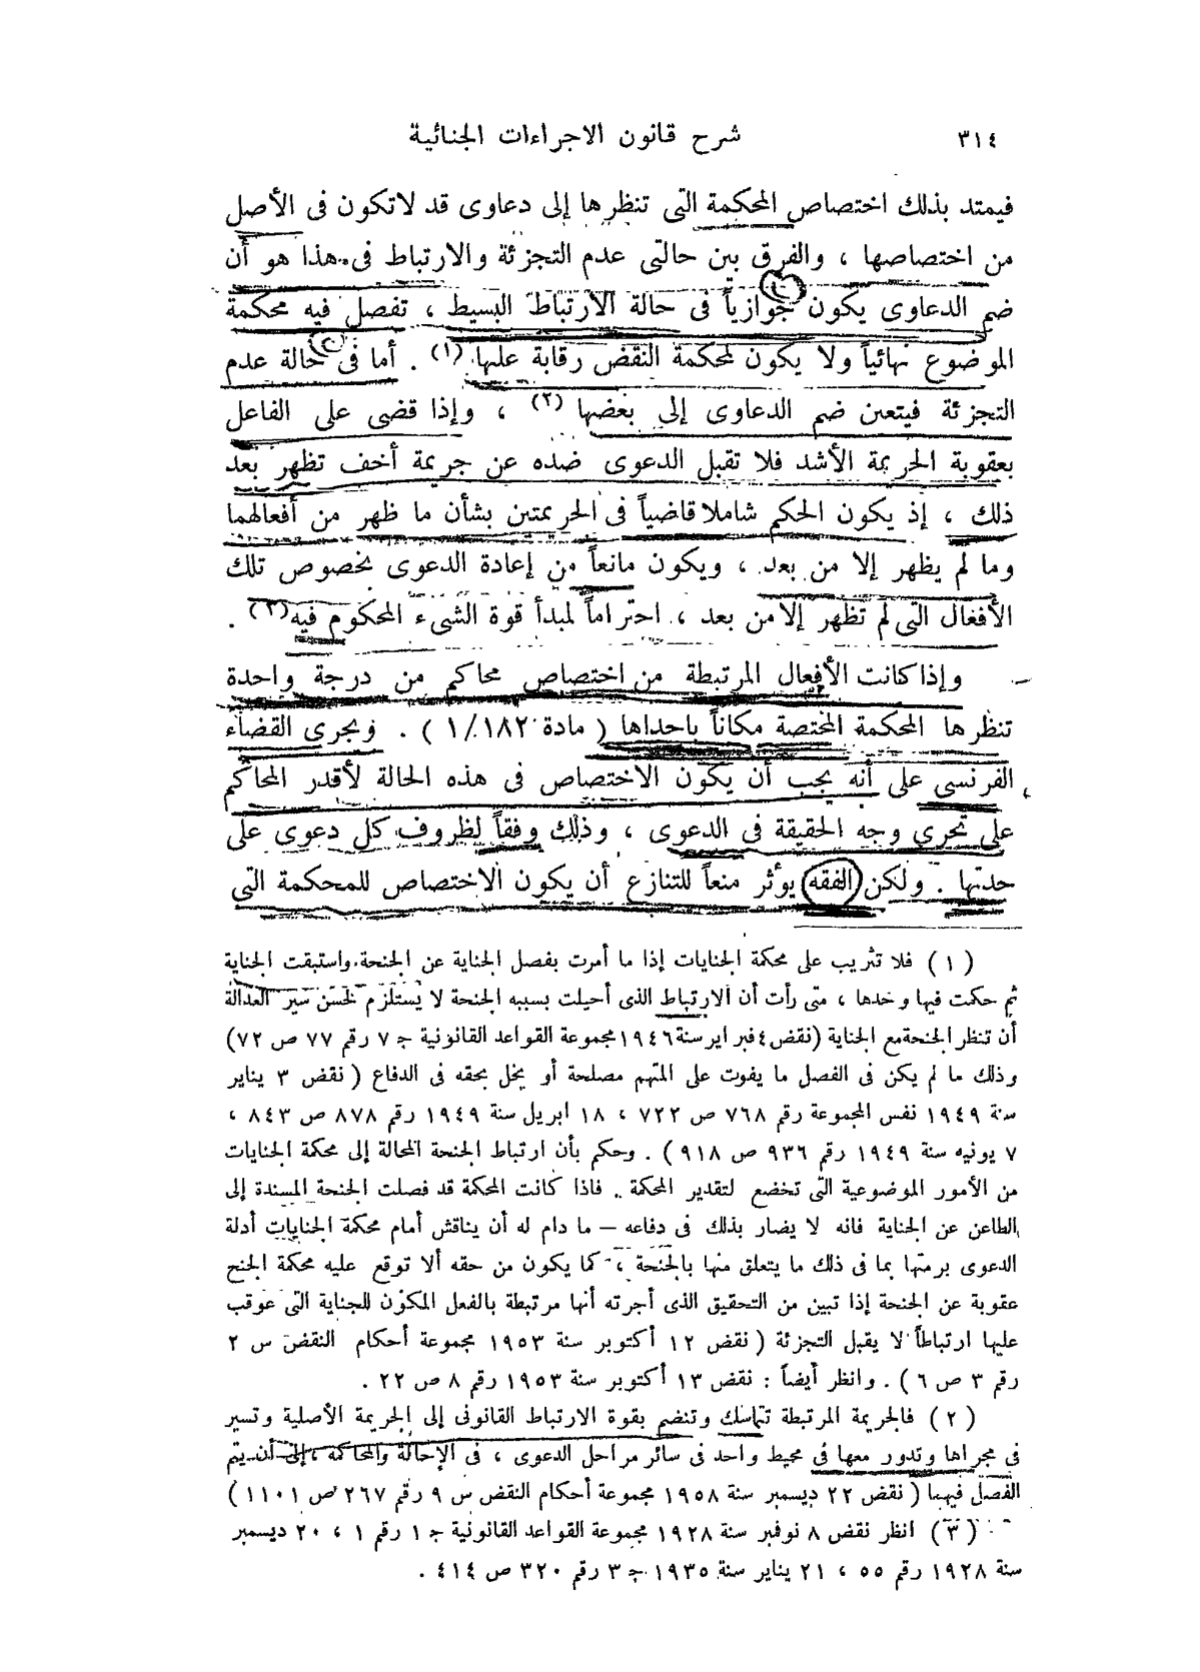 ٣١٤
شرح قانون الاجراءات الجنائية
فيمتد بذلك اختصاص المحكمة التى تنظرها إلى دعاوى قد لاتكون فى الأصل
من اختصاصها ، والفرق بين حالتى عدم التجزئة والارتباط فى هذا هو أن
ضم الدعاوى يكون جوازياً فى حالة الارتباط البسيط ، تفصل فيه محكمة
الموضوع نهائياً ولا يكون لمحكمة النقض رقابة عليها (١) . أما فى حالة عدم
التجزئة فيتعين ضم الدعاوى إلى بعضها (٢) ، وإذا قضى على الفاعل
بعقوبة الجريمة الأشد فلا تقبل الدعوى ضده عن جريمة أخف تظهر بعد
ذلك ، إذ يكون الحكم شاملا قاضياً فى الجريمتين بشأن ما ظهر من أفعالهما
وما لم يظهر إلا من بعد ، ويكون مانعاً من إعادة الدعوى بخصوص تلك
الأفعال التى لم تظهر إلا من بعد ، احتراماً لمبدأ قوة الشىء المحكوم فيه (٣) .
وإذا كانت الأفعال المرتبطة من اختصاص محاكم من درجة واحدة
تنظرها المحكمة المختصة مكاناً باحداها ( مادة ١/١٨٢ ) . ويجرى القضاء
الفرنسى على أنه يجب أن يكون الاختصاص فى هذه الحالة لأقدر المحاكم
على تحرى وجه الحقيقة فى الدعوى ، وذلك وفقاً لظروف كل دعوى على
حدتها . ولكن الفقه يؤثر منعاً للتنازع أن يكون الاختصاص للمحكمة التى
( ١ ) فلا تثريب على محكمة الجنايات إذا ما أمرت بفصل الجناية عن الجنحة واستبقت الجناية
ثم حكمت فيها وحدها ، متى رأت أن الارتباط الذى أحيلت بسببه الجنحة لا يستلزم لحسن سير العدالة
أن تنظر الجنحة مع الجناية (نقض ٤ فبراير سنة ١٩٤٦ مجموعة القواعد القانونية ج ٧ رقم ٧٧ ص ٧٢)
وذلك ما لم يكن فى الفصل ما يفوت على المتهم مصلحة أو يخل بحقه فى الدفاع ( نقض ٣ يناير
سنة ١٩٤٩ نفس المجموعة رقم ٧٦٨ ص ٧٢٢ ، ١٨ ابريل سنة ١٩٤٩ رقم ٨٧٨ ص ٨٤٣ ،
٧ يونيه سنة ١٩٤٩ رقم ٩٣٦ ص ٩١٨ ) . وحكم بأن ارتباط الجنحة المحالة إلى محكمة الجنايات
من الأمور الموضوعية التى تخضع لتقدير المحكمة . فاذا كانت المحكمة قد فصلت الجنحة المسندة إلى
الطاعن عن الجناية فانه لا يضار بذلك فى دفاعه – ما دام له أن يناقش أمام محكمة الجنايات أدلة
الدعوى برمتها بما فى ذلك ما يتعلق منها بالجنحة ، كما يكون من حقه ألا توقع عليه محكمة الجنح
عقوبة عن الجنحة إذا تبين من التحقيق الذى أجرته أنها مرتبطة بالفعل المكوّن للجناية التى عوقب
عليها ارتباطاً لا يقبل التجزئة ( نقض ١٢ أكتوبر سنة ١٩٥٣ مجموعة أحكام النقض س ٢
رقم ٣ ص ٦ ) . وانظر أيضاً : نقض ١٣ أكتوبر سنة ١٩٥٣ رقم ٨ ص ٢٢ .
( ٢ ) فالجريمة المرتبطة تتماسك وتنضم بقوة الارتباط القانونى إلى الجريمة الأصلية وتسير
فى مجراها وتدور معها فى محيط واحد فى سائر مراحل الدعوى ، فى الإحالة والمحاكمة ، إلى أن يتم
الفصل فيهما ( نقض ٢٢ ديسمبر سنة ١٩٥٨ مجموعة أحكام النقض س ٩ رقم ٢٦٧ ص ١١٠١ )
( ٣ ) انظر نقض ٨ نوفمبر سنة ١٩٢٨ مجموعة القواعد القانونية ج ١ رقم ١ ، ٢٠ ديسمبر
سنة ١٩٢٨ رقم ٥٥ ، ٢١ يناير سنة ١٩٣٥ ج ٣ رقم ٣٢٠ ص ٤١٤ .